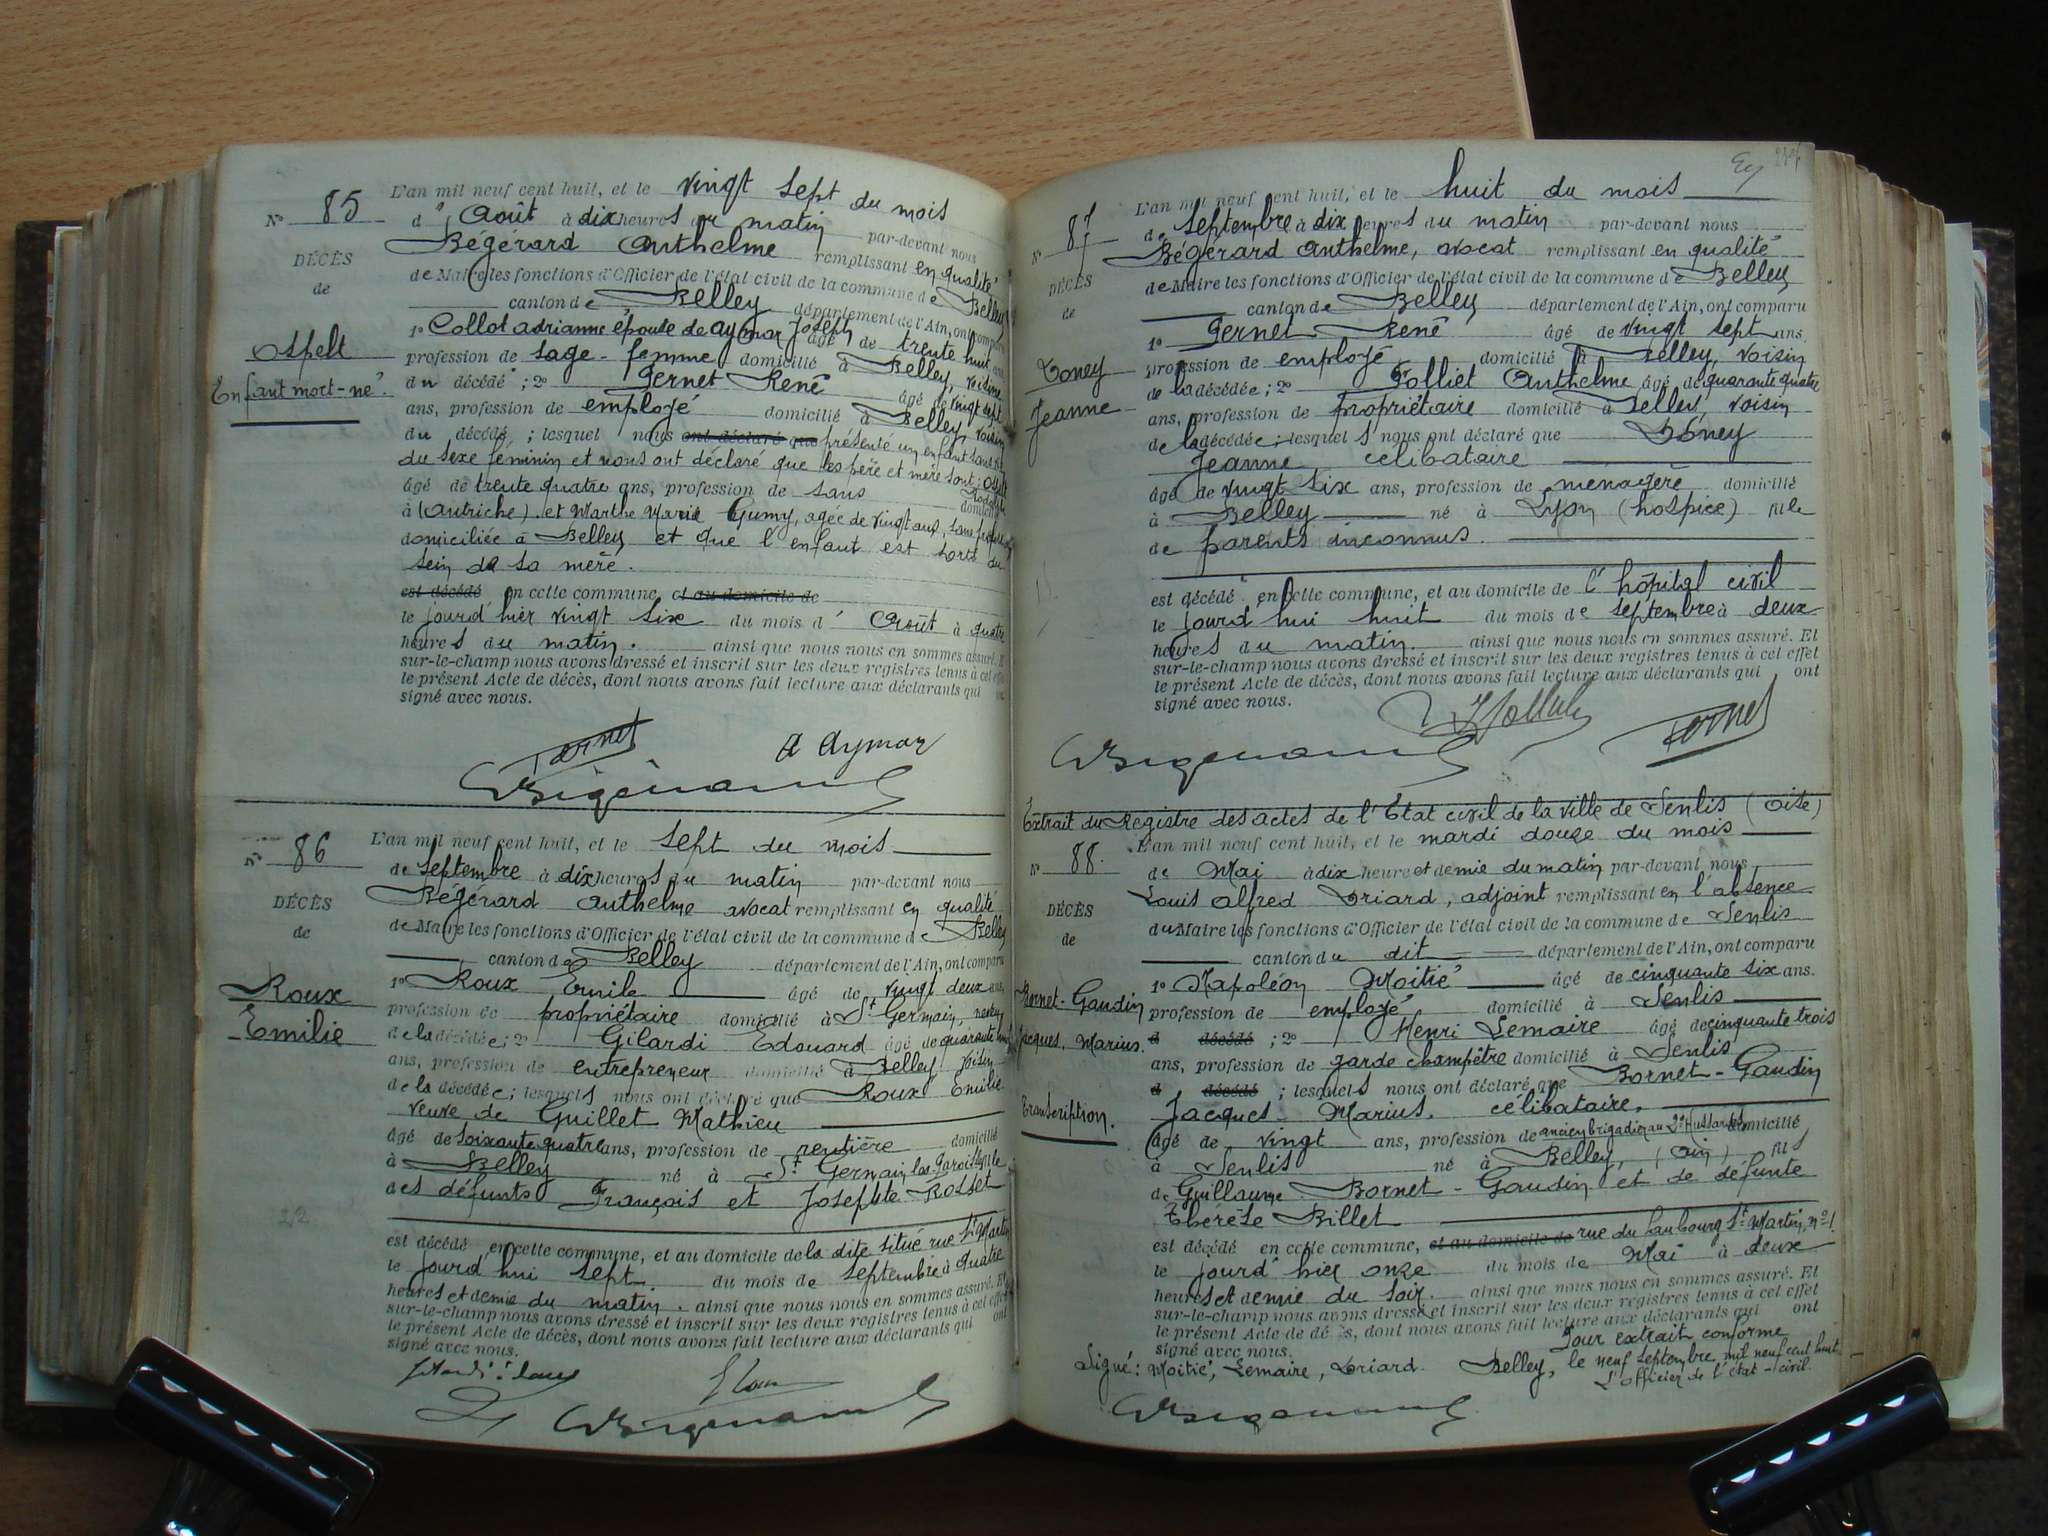 N° 85
DÉCÈS
de
Aspelt
Enfant mort-né
L'an mil neuf cent huit, et le vingt sept du mois
d' Août à dix heures du matin par-devant nous
Bégérard Anthelme remplissant en qualité
de Maire les fonctions d'Officier de l'état civil de la commune de Belley
canton de Belley département de l'Ain, ont comparu
1° Collot adrianne épouse de aymar Joseph âgé de trente huit ans
profession de sage-femme domicilié à Belley, voisine
du décédé ; 2° Pernet René âgé de vingt sept
ans, profession de employé domicilié à Belley, voisin
du décédé ; lesquel nous ont déclaré que présenté un enfant sans vie
du sexe féminin et nous ont déclaré que les père et mère sont :
âgé de trente quatre ans, profession de sans domicilié
à (autriche). et Marthe Marie Gumy, agée de vingt ans, sans profession
domiciliée à Belley et que l'enfant est sorti du
sein de sa mère.
est décédé en cette commune, et au domicile de
le jourd'hier vingt six du mois d' Août à quatre
heures du matin. ainsi que nous nous en sommes assuré. Et
sur-le-champ nous avons dressé et inscrit sur les deux registres tenus à cet effet
le présent Acte de décès, dont nous avons fait lecture aux déclarants qui ont
signé avec nous.
Pernet
A Aymar
N° 86
DÉCÈS
de
Roux
Emilie
L'an mil neuf cent huit, et le sept du mois
de septembre à dix heures du matin par-devant nous
Bégérard Anthelme avocat remplissant en qualité
de Maire les fonctions d'Officier de l'état civil de la commune de Belley
canton de Belley département de l'Ain, ont comparu
1° Roux Emile âgé de vingt deux ans,
profession de propriétaire domicilié à St Germain, neveu
de la décédée ; 2° Gilardi Edouard âgé de quarante
ans, profession de entrepreneur domicilié à Belley voisin
de la décédée ; lesquels nous ont déclaré que Roux Emilie
veuve de Guillet Mathieu
âgé de soixante quatre ans, profession de rentière domicilié
à Belley né à St Germain les Paroisses fille
des défunts François et Josephte Rosset
est décédé en cette commune, et au domicile de la dite situé rue St Martin
le jourd'hui sept du mois de septembre à quatre
heures et demie du matin. ainsi que nous nous en sommes assuré. Et
sur-le-champ nous avons dressé et inscrit sur les deux registres tenus à cet effet
le présent Acte de décès, dont nous avons fait lecture aux déclarants qui ont
signé avec nous.
N° 87
DÉCÈS
de
Toney
Jeanne
L'an mil neuf cent huit, et le huit du mois
de septembre à dix heures du matin par-devant nous
Bégérard Anthelme, avocat remplissant en qualité
de Maire les fonctions d'Officier de l'état civil de la commune de Belley
canton de Belley département de l'Ain, ont comparu
1° Pernet René âgé de vingt sept ans
profession de employé domicilié à Belley, voisin
de la décédée ; 2° Folliet Anthelme âgé de quarante quatre
ans, profession de propriétaire domicilié à Belley, voisin
de la décédée ; lesquels nous ont déclaré que Toney
Jeanne célibataire
âgé de vingt six ans, profession de ménagère domicilié
à Belley né à Lyon (hospice) fille
de parents inconnus.
est décédé en cette commune, et au domicile de l'hôpital civil
le jourd'hui huit du mois de septembre à deux
heures du matin. ainsi que nous nous en sommes assuré. Et
sur-le-champ nous avons dressé et inscrit sur les deux registres tenus à cet effet
le présent Acte de décès, dont nous avons fait lecture aux déclarants qui ont
signé avec nous.
Pernet
Extrait du Registre des actes de l'Etat civil de la ville de Senlis (oise)
N° 88.
DÉCÈS
de
Bornet-Gaudin
Jacques, Marius.
Transcription.
L'an mil neuf cent huit, et le mardi douze du mois
de Mai à dix heure et demie du matin par-devant nous
Louis alfred Driard, adjoint remplissant en l'absence
du Maire les fonctions d'Officier de l'état civil de la commune de Senlis
canton du dit département de l'Ain, ont comparu
1° Napoléon Moitié âgé de cinquante six ans.
profession de employé domicilié à Senlis
d décédé ; 2° Henri Lemaire âgé de cinquante trois
ans, profession de garde champêtre domicilié à Senlis
d décédé ; lesquels nous ont déclaré que Bornet-Gaudin
Jacques Marius. célibataire.
âgé de vingt ans, profession de ancien brigadier au 2e Hussards domicilié
à Senlis né à Belley, (ain) fils
de Guillaume Bornet-Gaudin et de défunte
Thérèse Billet
est décédé en cette commune, et au domicile de rue du faubourg St Martin, n° 1.
le jourd'hier onze du mois de Mai à deux
heures et demie du soir. ainsi que nous nous en sommes assuré. Et
sur-le-champ nous avons dressé et inscrit sur les deux registres tenus à cet effet
le présent Acte de décès, dont nous avons fait lecture aux déclarants qui ont
signé avec nous.
Pour extrait conforme
Signé : Moitié, Lemaire, Driard. Belley, le neuf septembre mil neuf cent huit.
L'officier de l'état-civil.